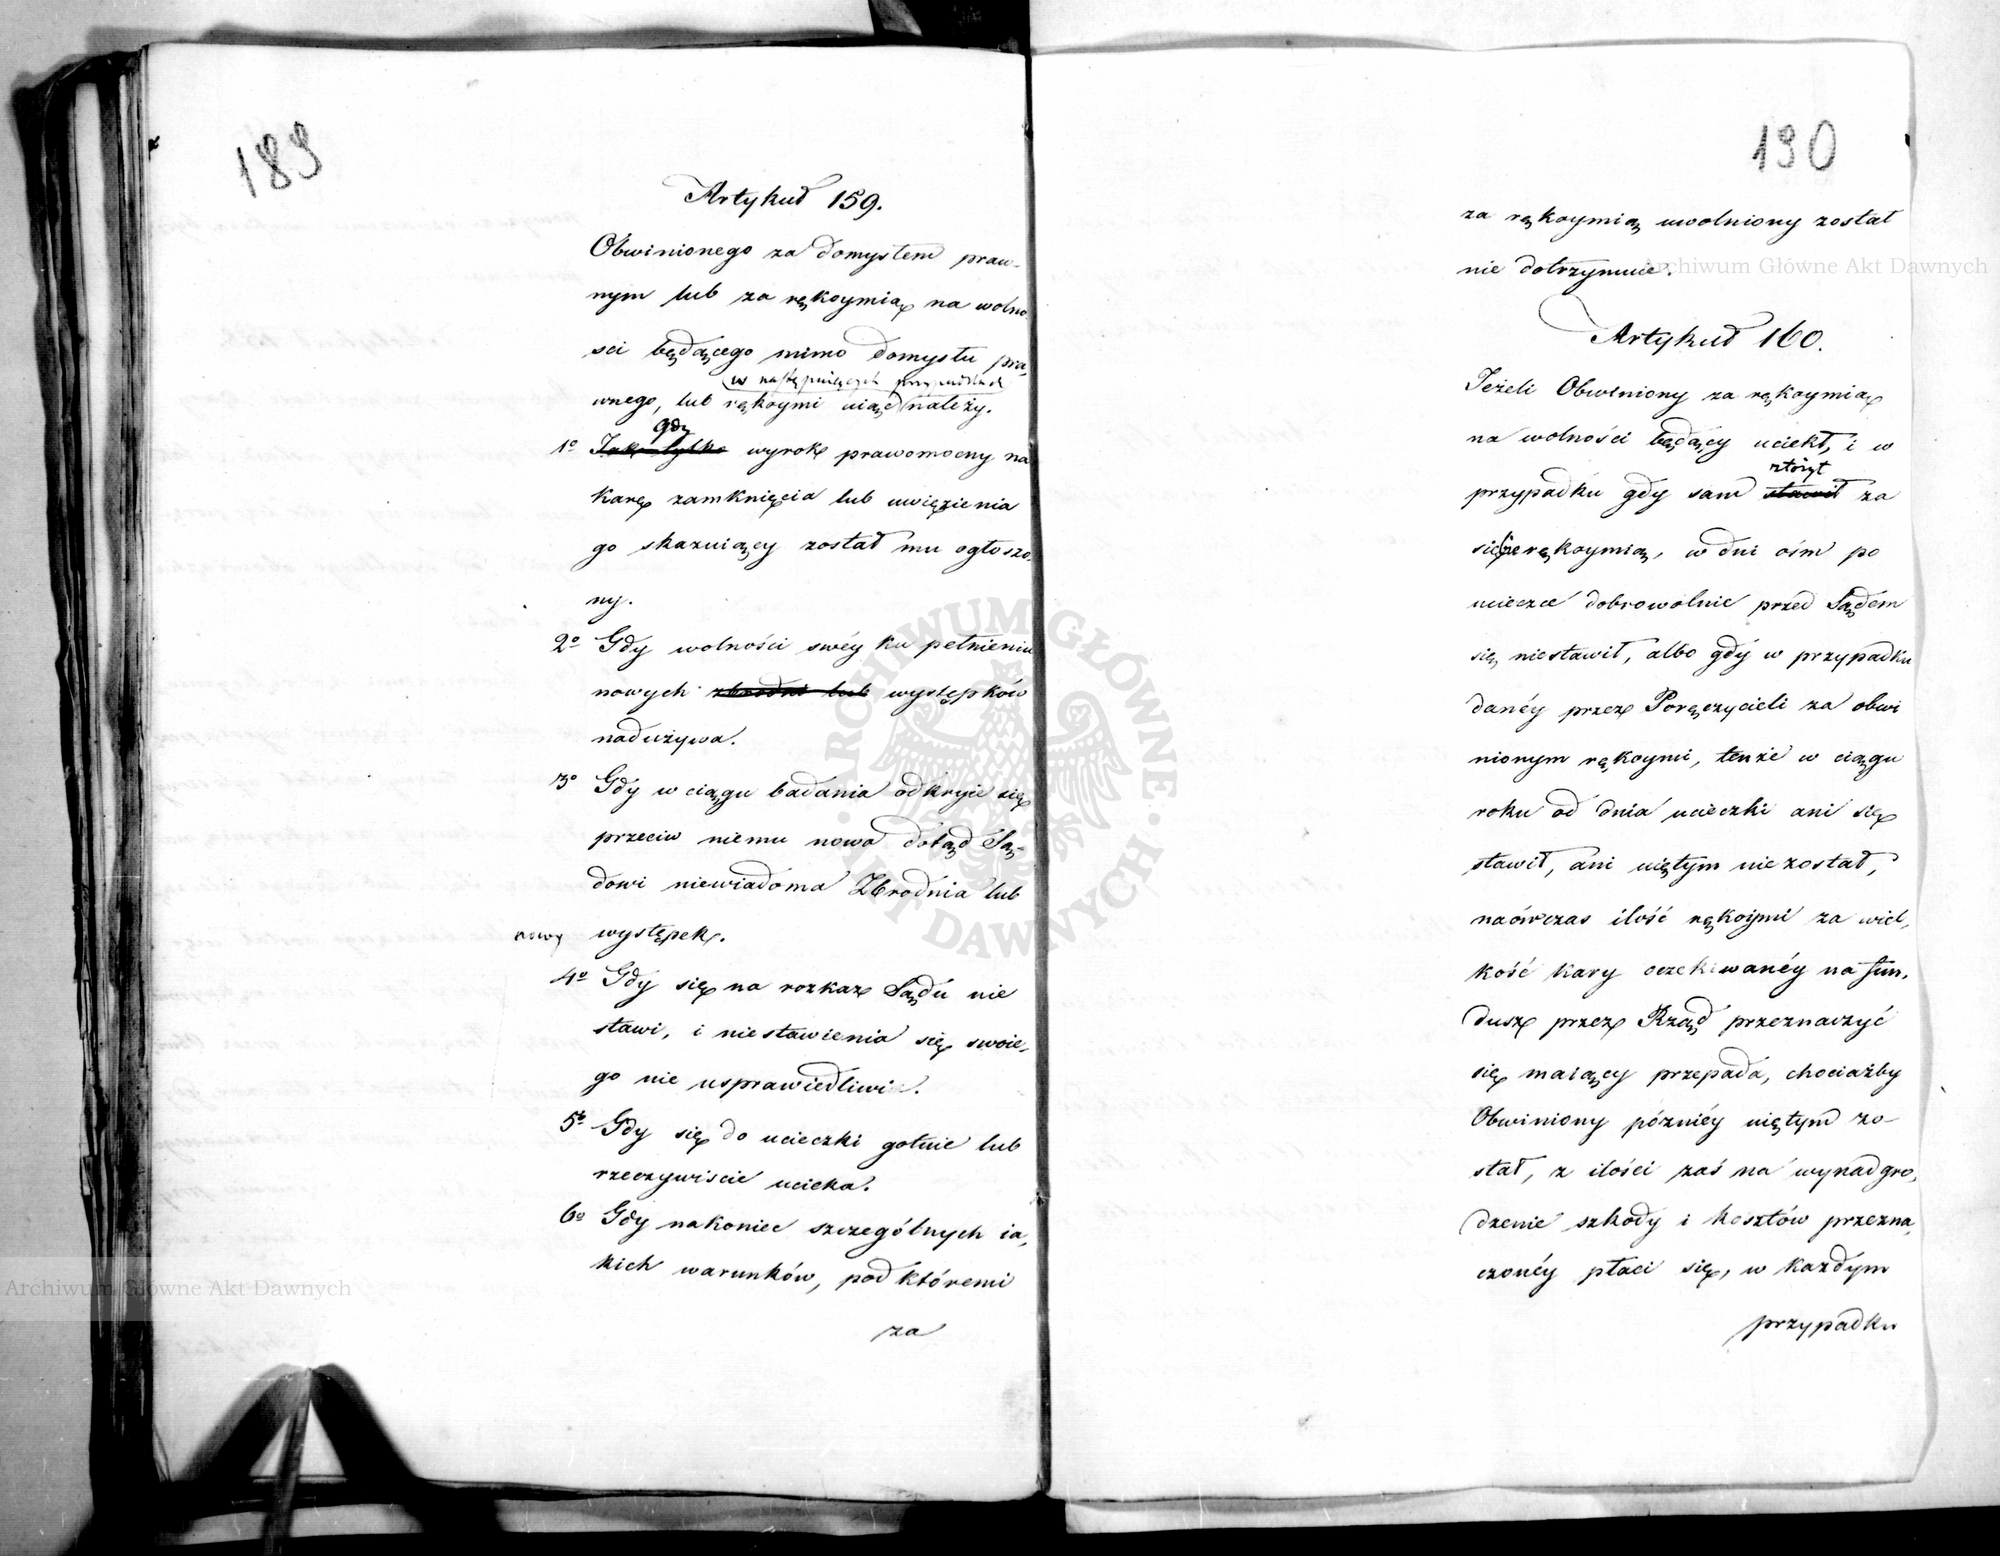 189
Artykuł 159.
Obwinionego za domysłem praw-
nym lub za rękoymią na wolno
sci będącego mimo domysłu pra,
w następuiących przypadkach
wnego, lub rękoymi uiąć należy.
gdy
1o Jak tylko wyrok prawomocny na
karę zamknięcia lub uwięzienia
go skazuiący został mu ogłoszo,
ny.
2o Gdy wolności swéy ku pełnieniu
nowych zbrodni lub występków
nadużywa.
3o Gdy w ciągu badania odkryie się
przeciw niemu nowa dotąd Są-
dowi niewiadoma Zbrodnia lub
nowy występek.
4o Gdy się na rozkaz Sądu nie
stawi, i niestawienia się swoie,
go nie usprawiedliwi.
5o Gdy się do ucieczki gotuie lub
rzeczywiscie ucieka.
6o Gdy nakoniec szczególnych ia,
kich warunków, pod któremi
za
190
za rękoymią uwolniony został
nie dotrzymuie.
Artykuł 160.
Jeżeli Obwiniony za rękoymią
na wolności będący uciekł, i w
złożył
przypadku gdy sam stawił za
siebie rękoymią, w dni ośm po
ucieczce dobrowolnie przed Sądem
się niestawił, albo gdy w przypadku
danéy przez Poręczycieli za obwi
nionym rękoymi, tenże w ciągu
roku od dnia ucieczki ani się
stawił, ani uiętym nie został,
naówczas ilość rękoymi za wiel,
kość kary oczekiwanéy na fun,
dusz przez Rząd przeznaczyć
się maiący przepada, chociażby
Obwiniony późniéy uiętym zo-
stał, z ilości zaś na wynadgro,
dzenie szkody i kosztów przezna,
czonéy płaci się, w każdym
przypadku
Archiwum Główne Akt Dawnych
Archiwum Główne Akt Dawnych
ARCHIWUM GŁÓWNE
AKT DAWNYCH